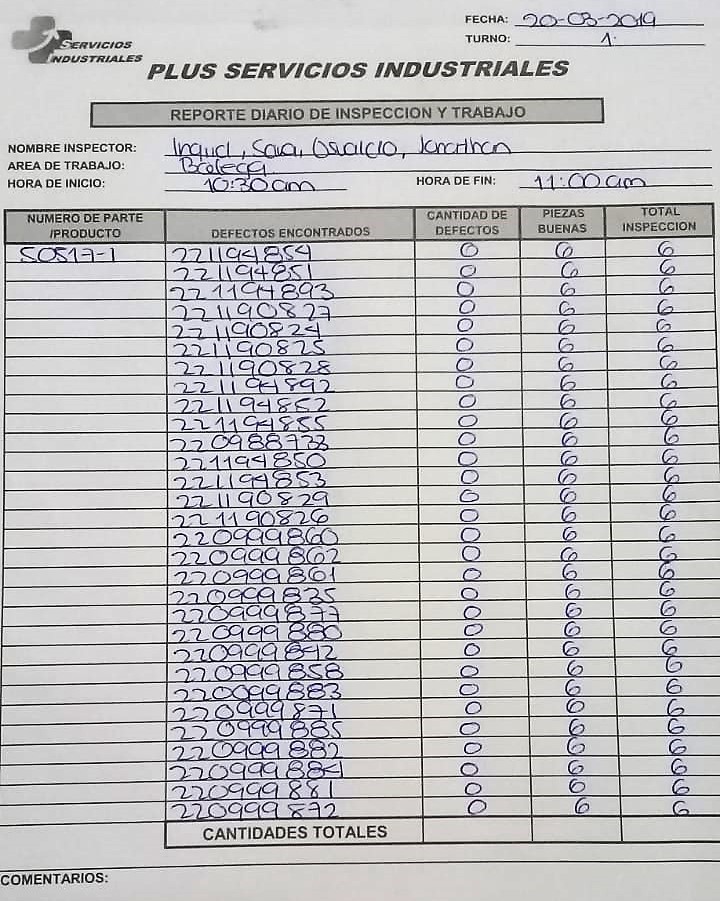 FECHA: 20-03-2019
TURNO: 1.
SERVICIOS
INDUSTRIALES
PLUS SERVICIOS INDUSTRIALES
REPORTE DIARIO DE INSPECCION Y TRABAJO
NOMBRE INSPECTOR: Sara, Osvaldo, Jonathan
AREA DE TRABAJO: Bodega
HORA DE INICIO: 10:30am HORA DE FIN: 11:00am
NUMERO DE PARTE /PRODUCTO DEFECTOS ENCONTRADOS CANTIDAD DE DEFECTOS PIEZAS BUENAS TOTAL INSPECCION
50517-1 221194854 0 6 6
221194851 0 6 6
221194893 0 6 6
221190827 0 6 6
221190824 0 6 6
221190825 0 6 6
221190828 0 6 6
221194892 0 6 6
221194852 0 6 6
221194855 0 6 6
220988733 0 6 6
221194850 0 6 6
221194853 0 6 6
221190829 0 6 6
221190826 0 6 6
220999860 0 6 6
220999862 0 6 6
220999861 0 6 6
220999835 0 6 6
220999877 0 6 6
220999880 0 6 6
220999842 0 6 6
220999858 0 6 6
220999883 0 6 6
220999871 0 6 6
220999885 0 6 6
220999882 0 6 6
220999884 0 6 6
220999881 0 6 6
220999872 0 6 6
CANTIDADES TOTALES
COMENTARIOS: